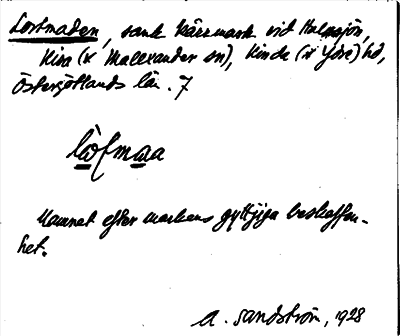 Lortmaden, sank kärrmark vid Halasjön,
Kisa (x Malexander sn), Kinda (x Ydre) hd,
Östergötlands län. 7
làfmaa
Namnet efter markens gyttjiga beskaffen-
het.
A. Sandström, 1928